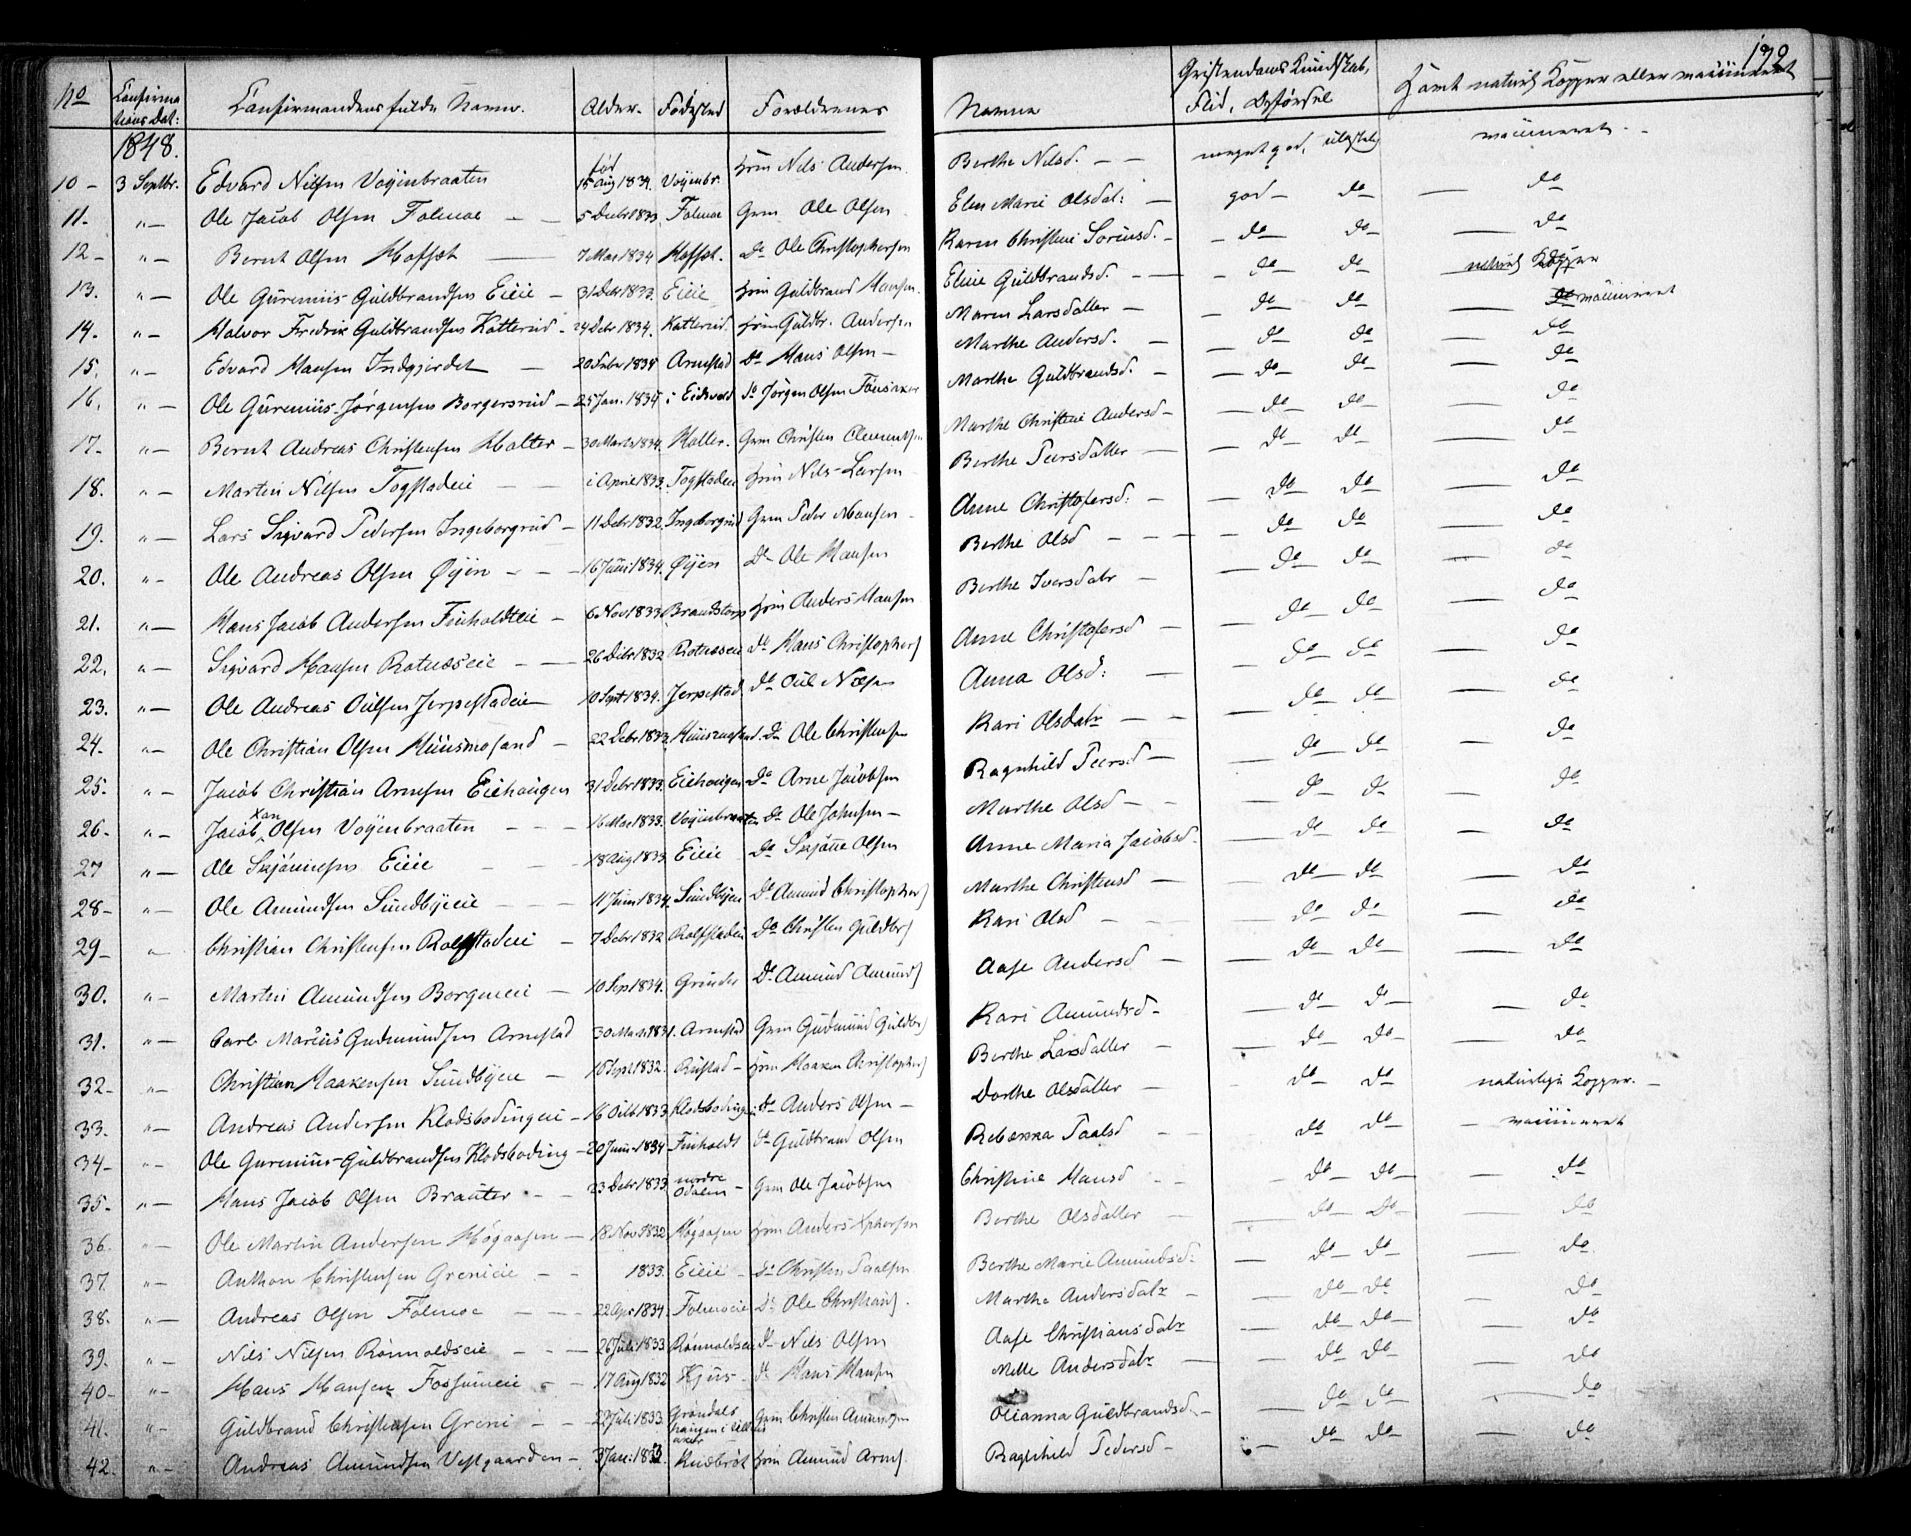 172
No Confirmations Dat: Confirmandens fulde Navne. Alder. Fødested Forældrenes Navne Christendoms Kundskab, Flid, Opførsel Havt naturl Kopper eller vaccineret
1848.
10 – 3 Septbr. Edvard Nilsen Voÿenbraaten fød 15 Aug 1834. Voÿenbr. Hm Nils Andersen Berthe Nilsd. – – meget god, vaccineret
11. " – Ole Jacob Olsen Folmoe – – 5 Decbr 1833 Folmoe Gm Ole Olsen Elen Marie Olsdat: – god – do – do
12 – " – Bernt Olsen Hoffset – 7 Mar 1834 Hoffset. do Ole Christophersen Karen Christine Sørensd. – do do – do
13. " – Ole Gureniüs Güldbrandsen Eeie – 31 Debr 1833. Eeie Hm Guldbrand Hansen Eline Güldbrandsd. – do do – naturl Kopper
14. " – Halvor Fredrik Guldbrandsen Katterüd – 24 Debr 1834. Katterüd. Hm Güldbr. Andersen Maren Larsdatter – do do – vaccineret
15. " – Edvard Hansen Indgjerdet – 20 Febr 1834 Arnestad do Hans Olsen – Marthe Andersd. – do do – do
16. " – Ole Güreniüs Jørgensen Borgersrüd – 25 Jan. 1834 i Eidsvold do Jørgen Olsen Marthe Güldbrandsd. – do do – do
17. " – Bernt Andreas Christensen Holter – 30 Marts 1834. Holter. Gm Christen Clementsen Marthe Christine Andersd – do do – do
18. " – Martin Nilsen Togstadeie – – i April 1833. Togstadeie Hm Nils Larsen Berthe Peersdatter – do do – do
19. " – Lars Sigvard Pedersen Ingeborgrüd – 11 Debr 1832. Ingeborgrüd Gm Peder Hansen – Anne Christofersd: – do do – do
20. " – Ole Andreas Olsen Øÿen – – 16 Juni 1834. Øÿen do Ole Hansen Berthe Olsd – – – do do – do
21. " – Hans Jacob Andersen Finholdteie – 6 Nov 1833 Brandstorp Hm Anders Hansen Berthe Iversdatr – do do – do
22. " – Sigvard Hansen Rotnæseie – – 26 Debr 1832 Rotnæseie do Hans Christophers Anne Christofersd – do do – do
23. " – Ole Andreas Oülsen Jerpestadeie – 10 Sept 1834. Jerpestad do Oül Nilsen Anna Olsd: – do do – do
24. " – Ole Christian Olsen Hüüsmosand – 22 Debr 1833. do Ole Christensen Kari Olsdatr – – do do – do
25. " – Jacob Christian Arnesen Eiehaugen 31 Debr 1833. Eiehaugen do Arne Jacobsen Ragnhild Peersd – do do – do
26. " – Jacob Xan Olsen Voÿenbraaten – – – 16 Mar 1833. Voÿenbraaten do Ole Johnsen – Marthe Olsd – – do do – do
27 " – Ole Skjönnesen Eeie – 18 Aug 1833 Eeie do Olsen Anne Maria Jacobsd. – do do – do
28 – " – Ole Amündsen Sündbÿeie – – – 11 Juni 1834. Sündbÿen do Amünd Christophers Marthe Christensd – do do – do
29 – " – Christian Christensen Rolfstadeie – 7 Debr 1832 Rolfstadeie do Christen Güldbrs Kari Olsd – – do do – do
30. " – Martin Amündsen Borgeneie – 10 Sep 1834. Grinder do Amünd Amünds Aase Andersd – do do – do
31. " – Carl Mariüs Gudmündsen Arnestad 30 Mar 1831. Arnestad Gm Güdmünd Güldbrs Kari Amündsd – do do – do
32 – " – Christian Haakensen Sündbÿeie – 16 Sept 1832. Rüstad – Hm Haaken Christophers Berthe Larsdatter – do do – do
33. " – Andreas Andersen Klodsbodingeie – 16 Octb 1833 Klodsbodingei do Anders Olsen – Dorthe Olsdatter – do do naturlige Kopper. –
34 – " – Ole Gureniüs Güldbrandsen Klodsboding – 20 Juni 1834 Finholdt do Güldbrand Olsen Rebekka Paalsd – – do do – vaccineret
35 – " – Hans Jacob Olsen Braüter – – 23 Debr 1833. nordre Odalen – Gm Ole Jacobsen Christine Hansd – – do do – do
36. " – Ole Martin Andersen Högaasen – 18 Nov 1832 Högaasen Hm Anders Xphersen Berthe Olsdatter – do do – do
37. " – Anthon Christensen Grenieie – – 1833. Eeie – do Christen Paalsen Berthe Marie Amündsd: – do do – do
38. " – Andreas Olsen Folmoe – – – 22 Apr 1834 Folmoeie do Ole Christians. Marthe Andersdatr – do do – do
39. " – Nils Nilsen Rønnoldseie – – – 26 Juli 1833 Rønnoldseie do Nils Olsen Aase Christiansdatr – do do – do
40 – " – Hans Hansen Fossümeie – – 17 Aug 1832 Kjus – do Hans Hansen Mille Andersdatr – do do – do
41. " – Güldbrand Christensen Greni – – 22 Juli 1833. Grøndalshaugen i Ullensaker Gm Christen Amündsen Olianna Guldbrandsd. – do do – do
42. " – Andreas Amündsen Vestgaarden – 3 Jan: 1833. Knæbröt Hm Amünd Arnes. Ragnhild Pedersd – do do – do